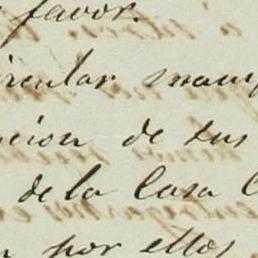 favor.
ircular
cion de sus
de la Casa
por ellos